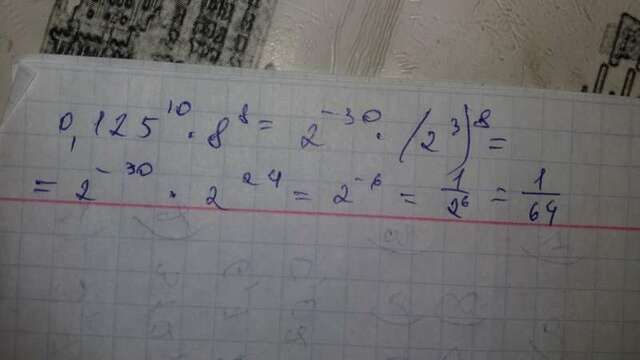 0,125¹⁰ · 8⁸ = 2⁻³⁰ · (2³)⁸ =
= 2⁻³⁰ · 2²⁴ = 2⁻⁶ = 1/2⁶ = 1/64